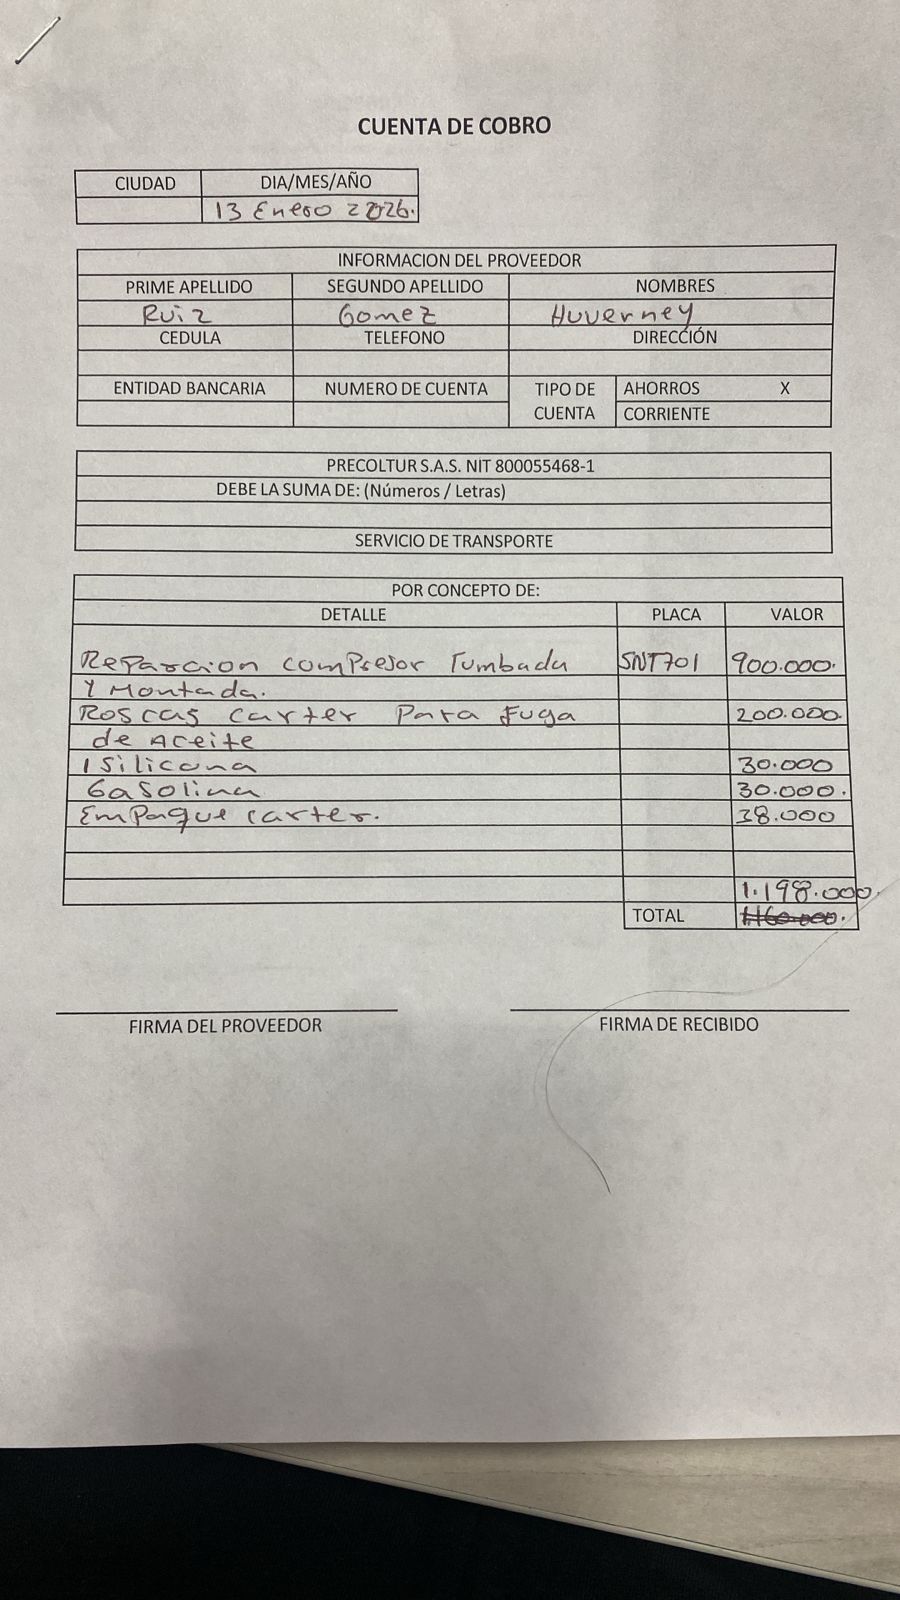 CUENTA DE COBRO
CIUDAD DIA/MES/AÑO
13 Enero 2026.
INFORMACION DEL PROVEEDOR
PRIME APELLIDO SEGUNDO APELLIDO NOMBRES
Ruiz Gomez Huverney
CEDULA TELEFONO DIRECCIÓN
ENTIDAD BANCARIA NUMERO DE CUENTA TIPO DE CUENTA AHORROS X
CORRIENTE
PRECOLTUR S.A.S. NIT 800055468-1
DEBE LA SUMA DE: (Números / Letras)
SERVICIO DE TRANSPORTE
POR CONCEPTO DE:
DETALLE PLACA VALOR
Reparcion compresor Tumbada SNT701 900.000.
Y Montada.
Roscas carter Para Fuga 200.000.
de Aceite
1 Silicona 30.000
Gasolina 30.000.
EmPaque carter. 38.000
1.198.000.
TOTAL 1.160.000.
FIRMA DEL PROVEEDOR FIRMA DE RECIBIDO